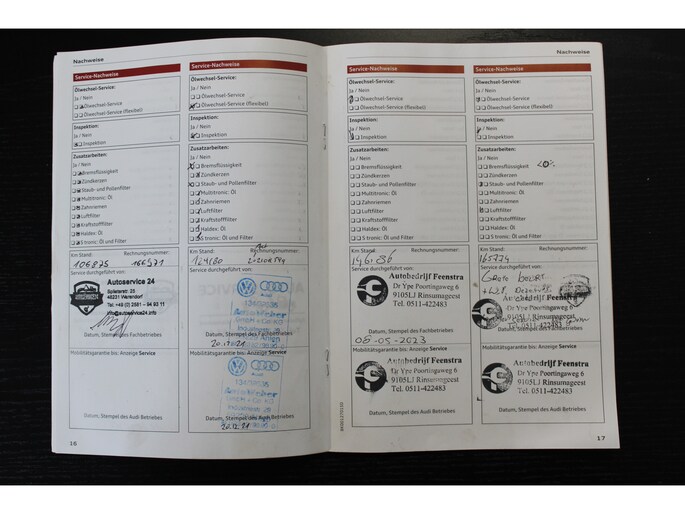 Nachweise
Service-Nachweise
Ölwechsel-Service:
Ja / Nein
Ölwechsel-Service
Ölwechsel-Service (flexibel)
Inspektion:
Ja / Nein
Inspektion
Zusatzarbeiten:
Ja / Nein
Bremsflüssigkeit
Zündkerzen
Staub- und Pollenfilter
Multitronic: Öl
Zahnriemen
Luftfilter
Kraftstofffilter
Haldex: Öl
S tronic: Öl und Filter
Km Stand: Rechnungsnummer:
106875
Service durchgeführt von:
Autoservice 24
Splieterstr. 25
48231 Warendorf
info@autoservice24.info
Datum, Stempel des Fachbetriebes
Mobilitätsgarantie bis: Anzeige Service
Datum, Stempel des Audi Betriebes
16
Service-Nachweise
Ölwechsel-Service:
Ja / Nein
Ölwechsel-Service
Ölwechsel-Service (flexibel)
Inspektion:
Ja / Nein
Inspektion
Zusatzarbeiten:
Ja / Nein
Bremsflüssigkeit
Zündkerzen
Staub- und Pollenfilter
Multitronic: Öl
Zahnriemen
Luftfilter
Kraftstofffilter
Haldex: Öl
S tronic: Öl und Filter
Km Stand: Rechnungsnummer:
Service durchgeführt von:
Datum, Stempel des Fachbetriebes
Mobilitätsgarantie bis: Anzeige Service
Datum, Stempel des Audi Betriebes
20.12.21
Nachweise
Service-Nachweise
Ölwechsel-Service:
Ja / Nein
Ölwechsel-Service
Ölwechsel-Service (flexibel)
Inspektion:
Ja / Nein
Inspektion
Zusatzarbeiten:
Ja / Nein
Bremsflüssigkeit
Zündkerzen
Staub- und Pollenfilter
Multitronic: Öl
Zahnriemen
Luftfilter
Kraftstofffilter
Haldex: Öl
S tronic: Öl und Filter
Km Stand: Rechnungsnummer:
146.086
Service durchgeführt von:
Autobedrijf Feenstra
Dr Ype Poortingaweg 6
9105LJ Rinsumageest
Tel. 0511-422483
Datum, Stempel des Fachbetriebes
08-05-2023
Mobilitätsgarantie bis: Anzeige Service
Autobedrijf Feenstra
Dr Ype Poortingaweg 6
9105LJ Rinsumageest
Tel. 0511-422483
Datum, Stempel des Audi Betriebes
Service-Nachweise
Ölwechsel-Service:
Ja / Nein
Ölwechsel-Service
Ölwechsel-Service (flexibel)
Inspektion:
Ja / Nein
Inspektion
Zusatzarbeiten:
Ja / Nein
Bremsflüssigkeit <0%
Zündkerzen
Staub- und Pollenfilter
Multitronic: Öl
Zahnriemen
Luftfilter
Kraftstofffilter
Haldex: Öl
S tronic: Öl und Filter
Km Stand: Rechnungsnummer:
165774
Service durchgeführt von:
Grote beurt
Datum, Stempel des Fachbetriebes
Mobilitätsgarantie bis: Anzeige Service
Autobedrijf Feenstra
Dr Ype Poortingaweg 6
9105LJ Rinsumageest
Tel. 0511-422483
Datum, Stempel des Audi Betriebes
17